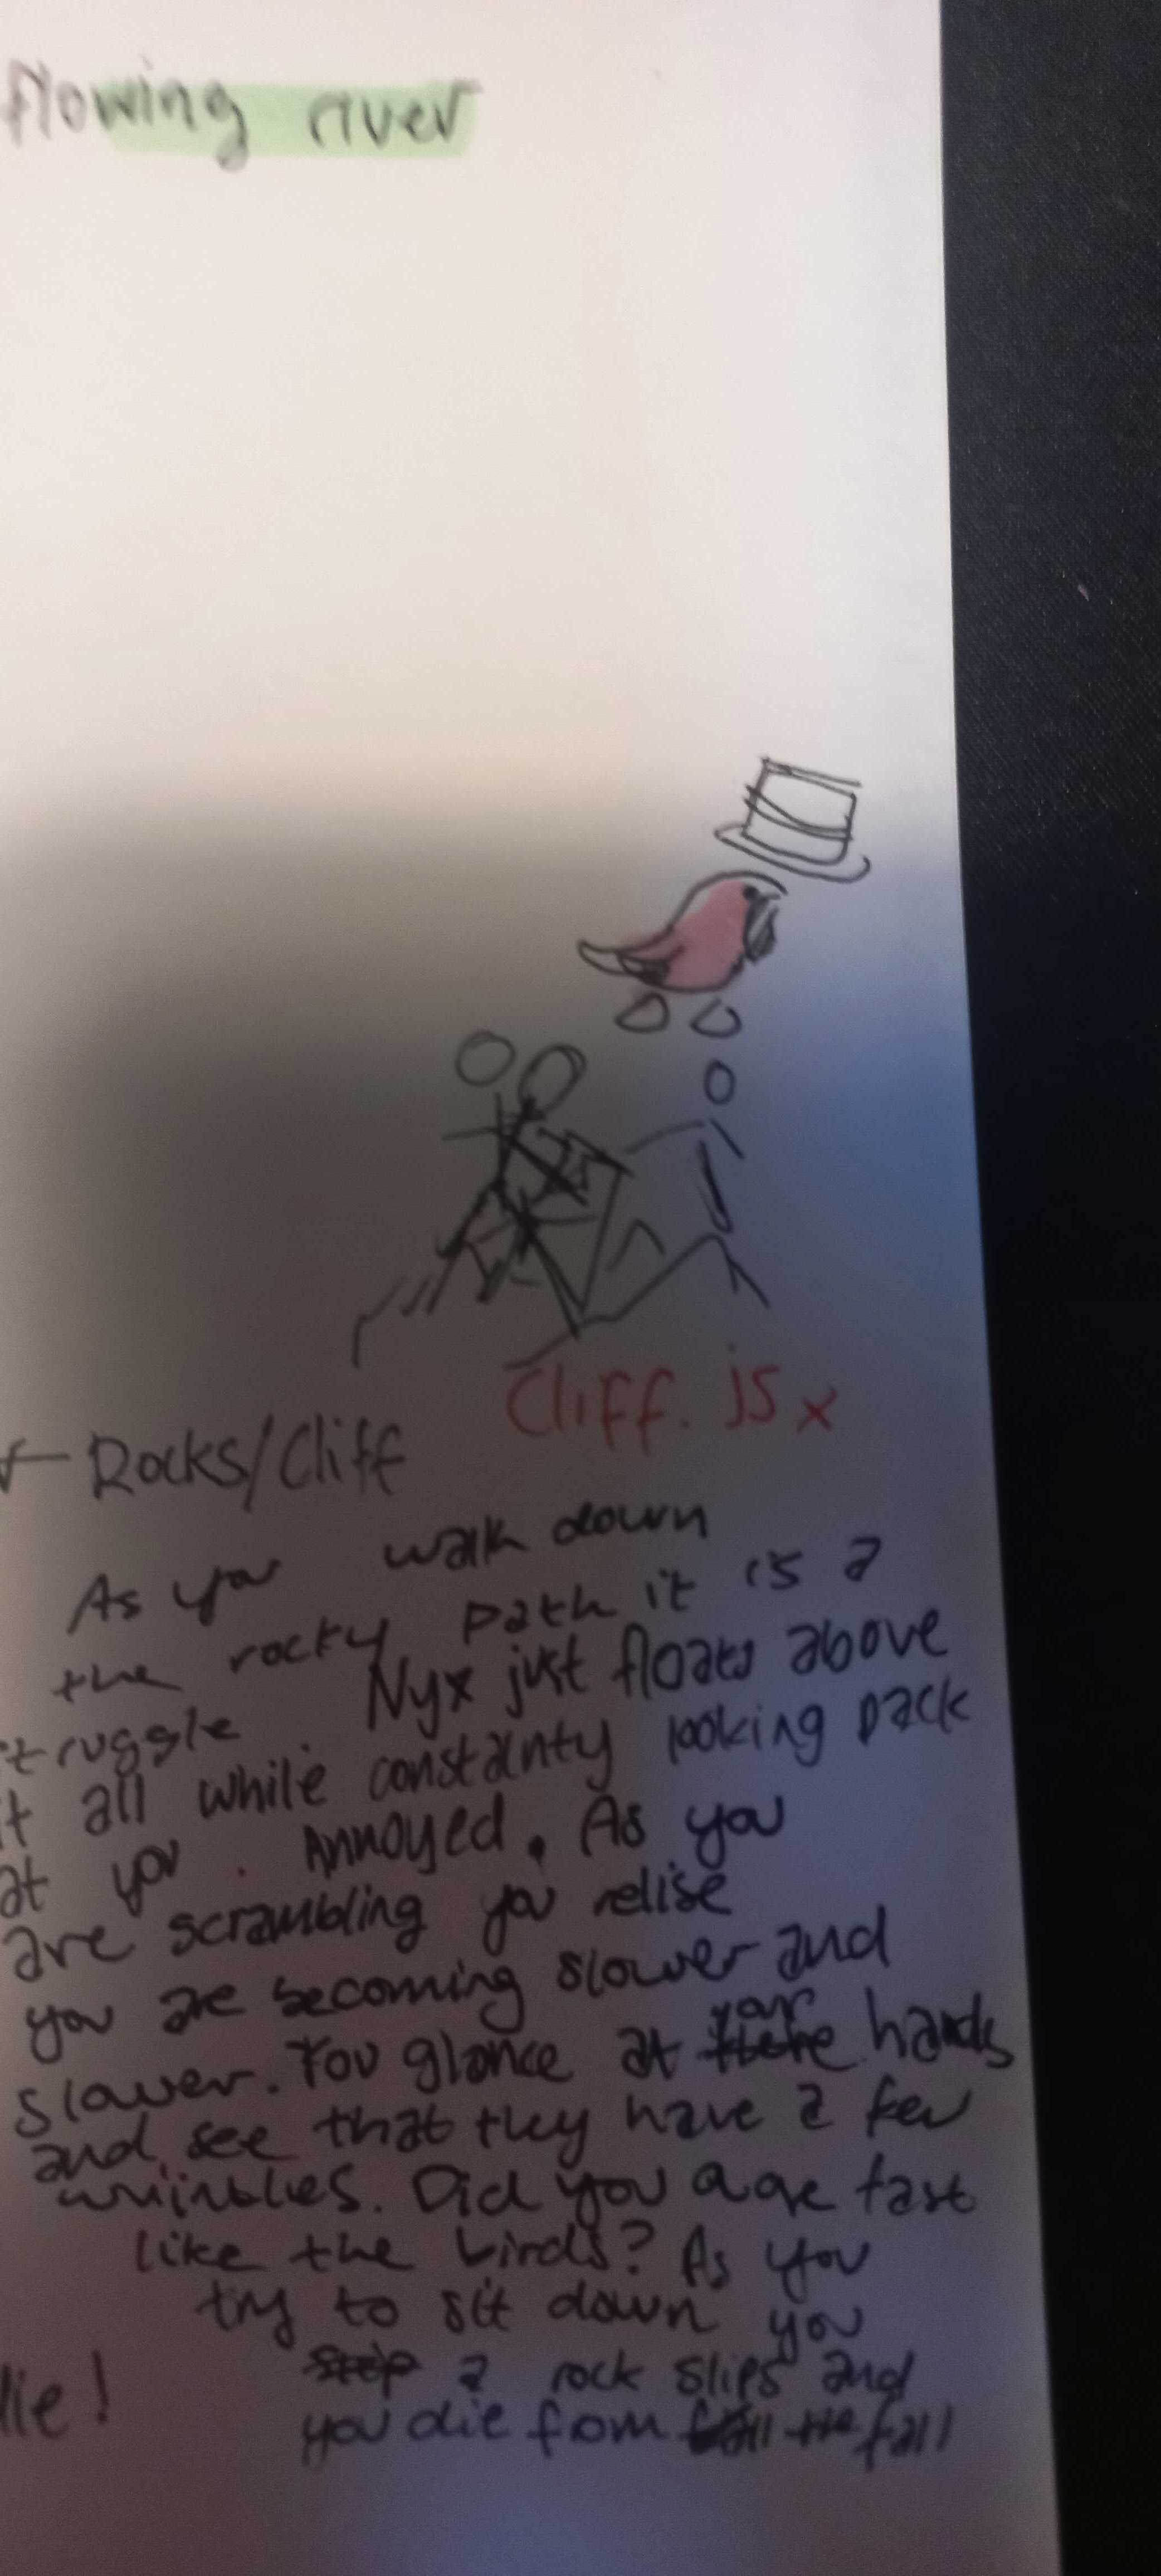 flowing river
Cliff.jsx
← Rocks/Cliff
As you walk down
the rocky path it is a
truggle. Nyx just floats above
it all while constanty looking back
at you. Annoyed. As you
are scrambling you relise
you are becoming slower and
slower. You glance at your hands
and see that they have a few
Did you age fast
like the birds? As you
try to sit down you
a rock slips and
lie!
you die from fall